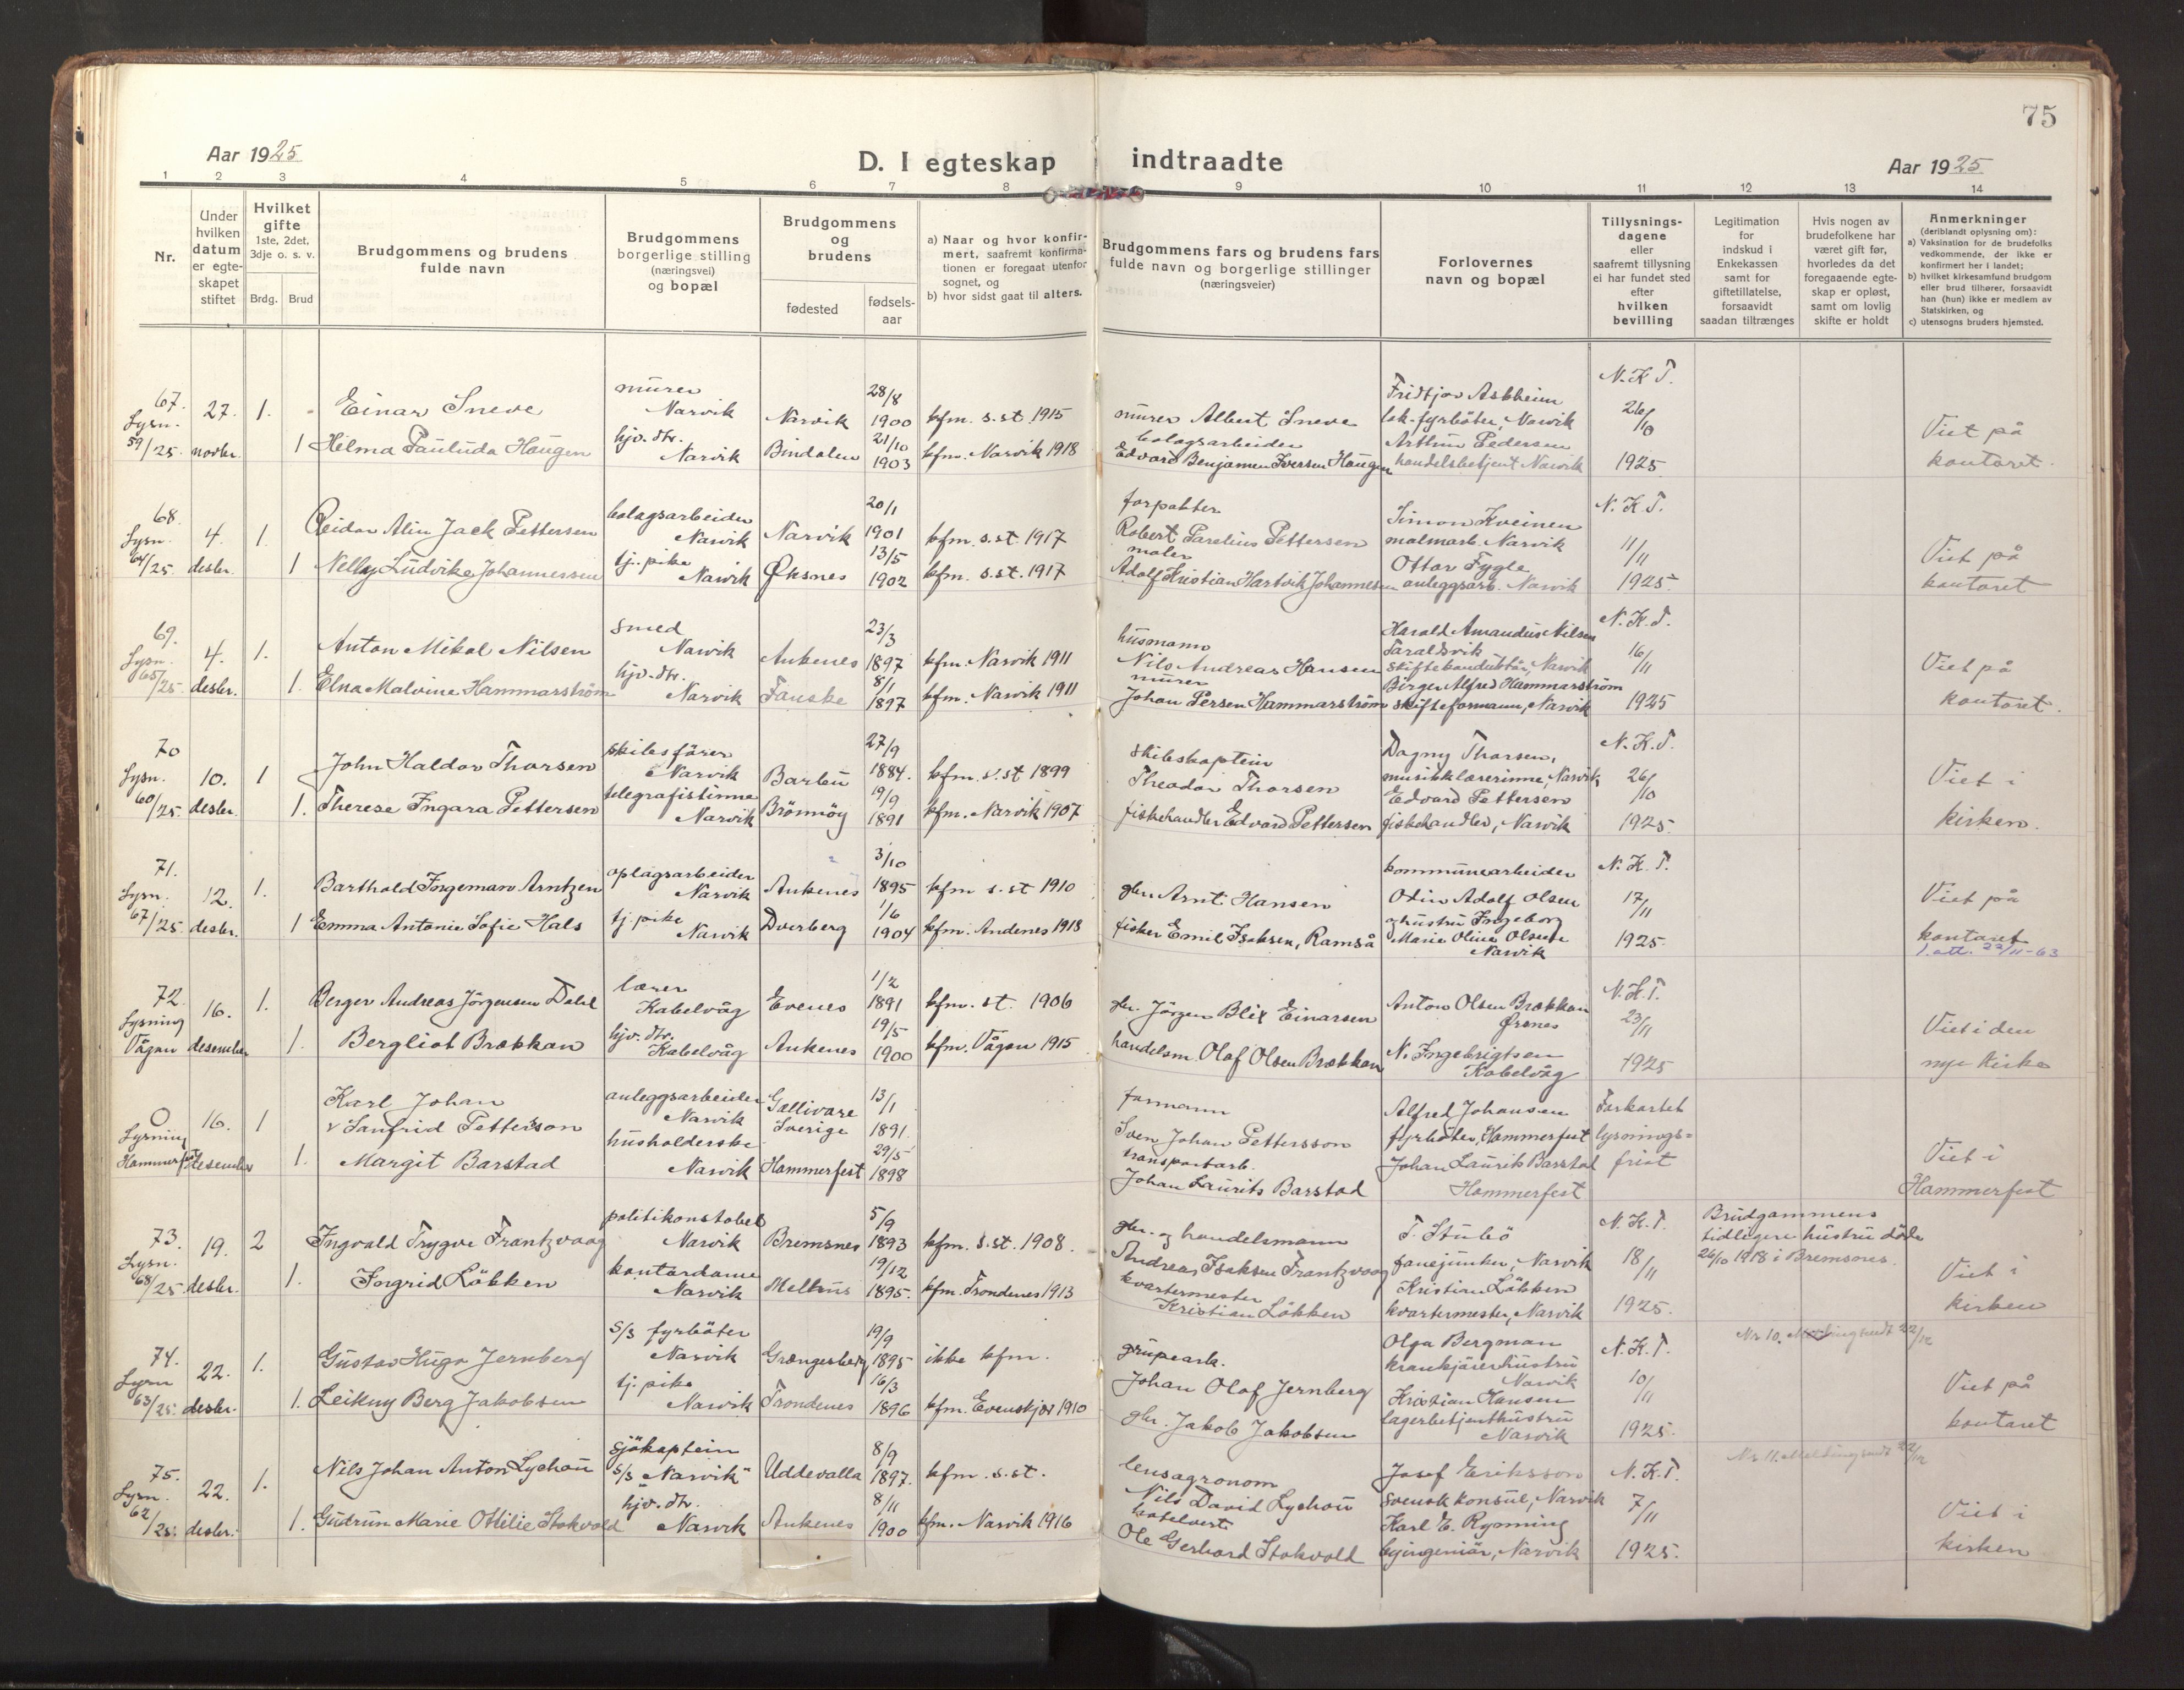 75
Aar 1925
D. I egteskap indtraadte
Aar 1925
1 2 3 4 5 6 7 8 9 10 11 12 13 14
Nr.
Under hvilken datum er egteskapet stiftet
Hvilket gifte
1ste, 2det, 3dje o. s. v.
Brdg. Brud
Brudgommens og brudens fulde navn
Brudgommens borgerlige stilling (næringsvei) og bopæl
Brudgommens og brudens
fødested
fødselsaar
a) Naar og hvor konfirmert, saafremt konfirmationen er foregaat utenfor sognet, og
b) hvor sidst gaat til alters.
Brudgommens fars og brudens fars fulde navn og borgerlige stillinger (næringsveier)
Forlovernes navn og bopæl
Tillysningsdagene eller saafremt tillysning ei har fundet sted efter hvilken bevilling
Legitimation for indskud i Enkekassen samt for giftetillatelse, forsaavidt saadan tiltrænges
Hvis nogen av brudefolkene har været gift før, hvorledes da det foregaaende egteskap er opløst, samt om lovlig skifte er holdt
Anmerkninger (deriblandt oplysning om):
a) Vaksination for de brudefolks vedkommende, der ikke er konfirmert her i landet;
b) hvilket kirkesamfund brudgom eller brud tilhører, forsaavidt han (hun) ikke er medlem av Statskirken, og
c) utensogns bruders hjemsted.
67. Lysn. 59/25 27. novbr. 1. Einar Sneve murer Narvik Narvik 28/8 1900 kfm. s.st. 1915 murer Albert Sneve Fridtjov Askheim lok.fyrbøter, Narvik N.K.T. 26/10 1925 Viet på kontoret.
1 Hilma Pauluda Haugen hjv. dtr. Narvik Bindalen 21/10 1903 kfm. Narvik 1918 bolagsarbeider Edvard Benjamin Iversen Haugen Arthur Pedersen handelsbetjent Narvik
68. Lysn. 64/25 4. desbr. 1. Reidar Alin Jack Pettersen bolagsarbeider Narvik Narvik 20/1 1901 kfm. s.st. 1917 forpakter Robert Parelius Pettersen Simon Kveinen malmarb. Narvik N.K.T. 11/11 1925 Viet på kontoret
1 Nelly Ludvikke Johannessen tj. pike Narvik Øksnes 13/5 1902 kfm. s.st. 1917 maler Adolf Kristian Hartvik Johannessen Ottar Fygle anleggsarb. Narvik
69. Lysn. 65/25 4. desbr. 1. Anton Mikal Nilsen smed Narvik Ankenes 23/3 1897 kfm. Narvik 1911 husmann Nils Andreas Hansen Harald Amandus Nilsen Taraldsvik skiftekonduktør, Narvik N.K.T. 16/11 1925 Viet på kontoret.
1. Elna Malvine Hammarstrøm hjv. dtr. Narvik Fauske 8/1 1897 kfm. Narvik 1911 murer Johan Persen Hammarstrøm Birger Alfred Hammarstrøm skifteformann, Narvik
70 Lysn. 60/25 10. desbr. 1 John Haldor Thorsen skibsfører Narvik Barbu 27/9 1884. kfm. s.st 1899 skibskaptein Theodor Thorsen Dagny Thorsen, musikklærerinne, Narvik N.K.T. 26/10 1925. Viet i kirken.
1. Therese Ingara Pettersen telegrafistinne Narvik Brönnöy 19/9 1891 kfm. Narvik 1907 fiskehandler Edvard Pettersen Edvard Pettersen fiskehandler, Narvik
71. Lysn. 67/25. 12. desbr. 1. Barthold Ingeman Arntzen oplagsarbeider Narvik Ankenes 3/10 1895 kfm s.st 1910 gbr Arnt Hansen kommunearbeider Odin Adolf Olsen N.K.T. 17/11 1925 Viet på kontoret
1 Emma Antonie Sofie Hals tj. pike Narvik Dverberg 1/6 1904 kfm. Andenes 1918 fisker Emil Isaksen, Ramså og hustru Ingeborg Marie Oline Olsen Narvik 1. att. 22/11-63
72. Lysning Vågan 16. desember 1. Berger Andreas Jörgensen Dahl lærer Kabelvåg Evenes 1/2 1891 kfm. st. 1906 gbr. Jörgen Blix Einarsen Anton Olsen Brækkan Ørsnes N.K.T. 23/11 1925 Viet i den nye kirke
1. Bergliot Brækkan hjv. dtr. Kabelvåg Ankenes 19/5 1900 kfm. Vågan 1915 handelsm. Olaf Olsen Brækkan N. Ingebrigtsen Kabelvåg
0 Lysning Hammerfest 16. desember 1 Karl Johan Sanfrid Petterson anleggsarbeider Narvik Gællivare Sverige 13/1 1891. formann Sven Johan Pettersson Alfred Johansen fyrbøter, Hammerfest Forkortet lysnings=frist Viet i Hammerfest
1. Margit Barstad husholderske Narvik Hammerfest 29/5 1898 transportarb. Johan Laurits Barstad Johan Laurits Barstad Hammerfest
73. Lysn. 68/25 19. desbr. 2 Ingvald Trygve Frantzvaag politikonstabel Narvik Bremsnes 5/9 1893 kfm. s.st. 1908. gbr. og handelsmann Andreas Isaksen Frantzvaag T. Stubö fanejunker, Narvik N.K.T. 18/11 1925. Brudgommens tidligere hustru döde 26/10 1918 i Bremsnes. Viet i kirken
1. Ingrid Lökken kontordame Narvik Melhus 19/12 1895. kfm. Trondenes 1913 kvartermester Kristian Lökken Kristian Lökken kvartermester, Narvik
74. Lysn 63/25. 22. desbr. 1. Gustav Hugo Jernberg S/S fyrböter Narvik Grængesberg 19/9 1895 ikke kfm. grupeark. Johan Olof Jernberg Olga Bergman krankjørerhustru Narvik N.K.T. 10/11 1925. Nr 10. Melding sendt 22/12 Viet på kontoret
1. Leikny Berg Jakobsen tj. pike Narvik Trondenes 16/3 1896 kfm. Evenskjær 1910 gbr. Jakob Jakobsen Kristian Hansen lagerbetjenthustru Narvik
75. Lysn. 62/25. 22. desbr. 1. Nils Johan Anton Lychou sjökaptein S/S Narvik" Uddevalla 8/9 1897. kfm. s.st. lensagronom Nils David Lychou Josef Eriksson svensk konsul, Narvik N.K.T. 7/11 1925. Nr 11. Melding sendt 22/12 Viet i kirken
1. Gudrun Marie Ottilie Stokvold hjv. dtr. Narvik Ankenes 8/11 1900 kfm. Narvik 1916 hotelvert Ole Gerhard Stokvold Karl E. Rynning byingeniör, Narvik